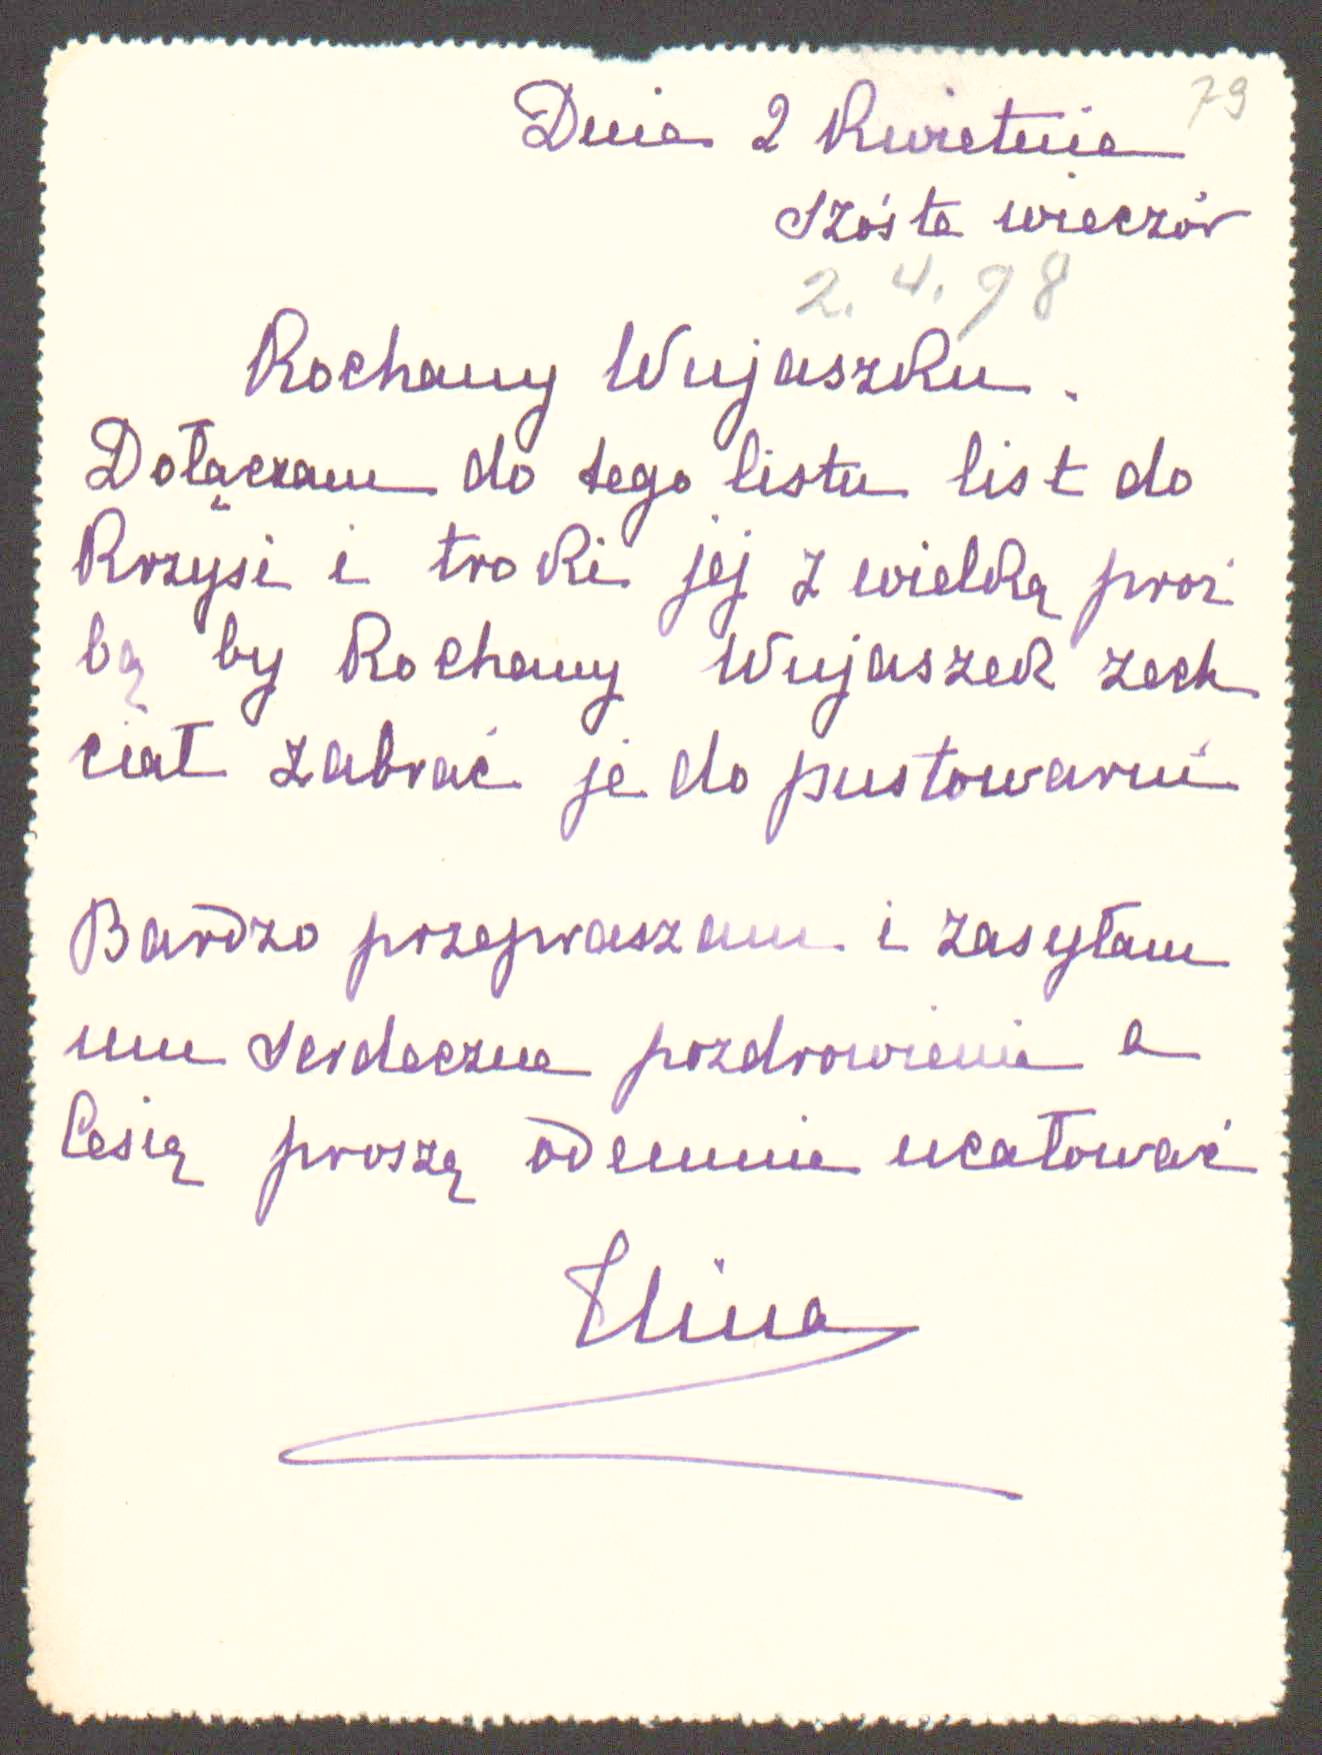 79
Dnia 2 Kwietnia
Szósta wieczór
2.4.98
Kochany Wujaszku.
Dołączam do tego listu list do
Krzysi i troki jej z wielką proź
bą by Kochany Wujaszek zech
ciał zabrać je do pustowarni
Bardzo przepraszam i zasyłam
mu serdeczne pozdrowienie a
Cesię proszę odemnie ucałować
Elina